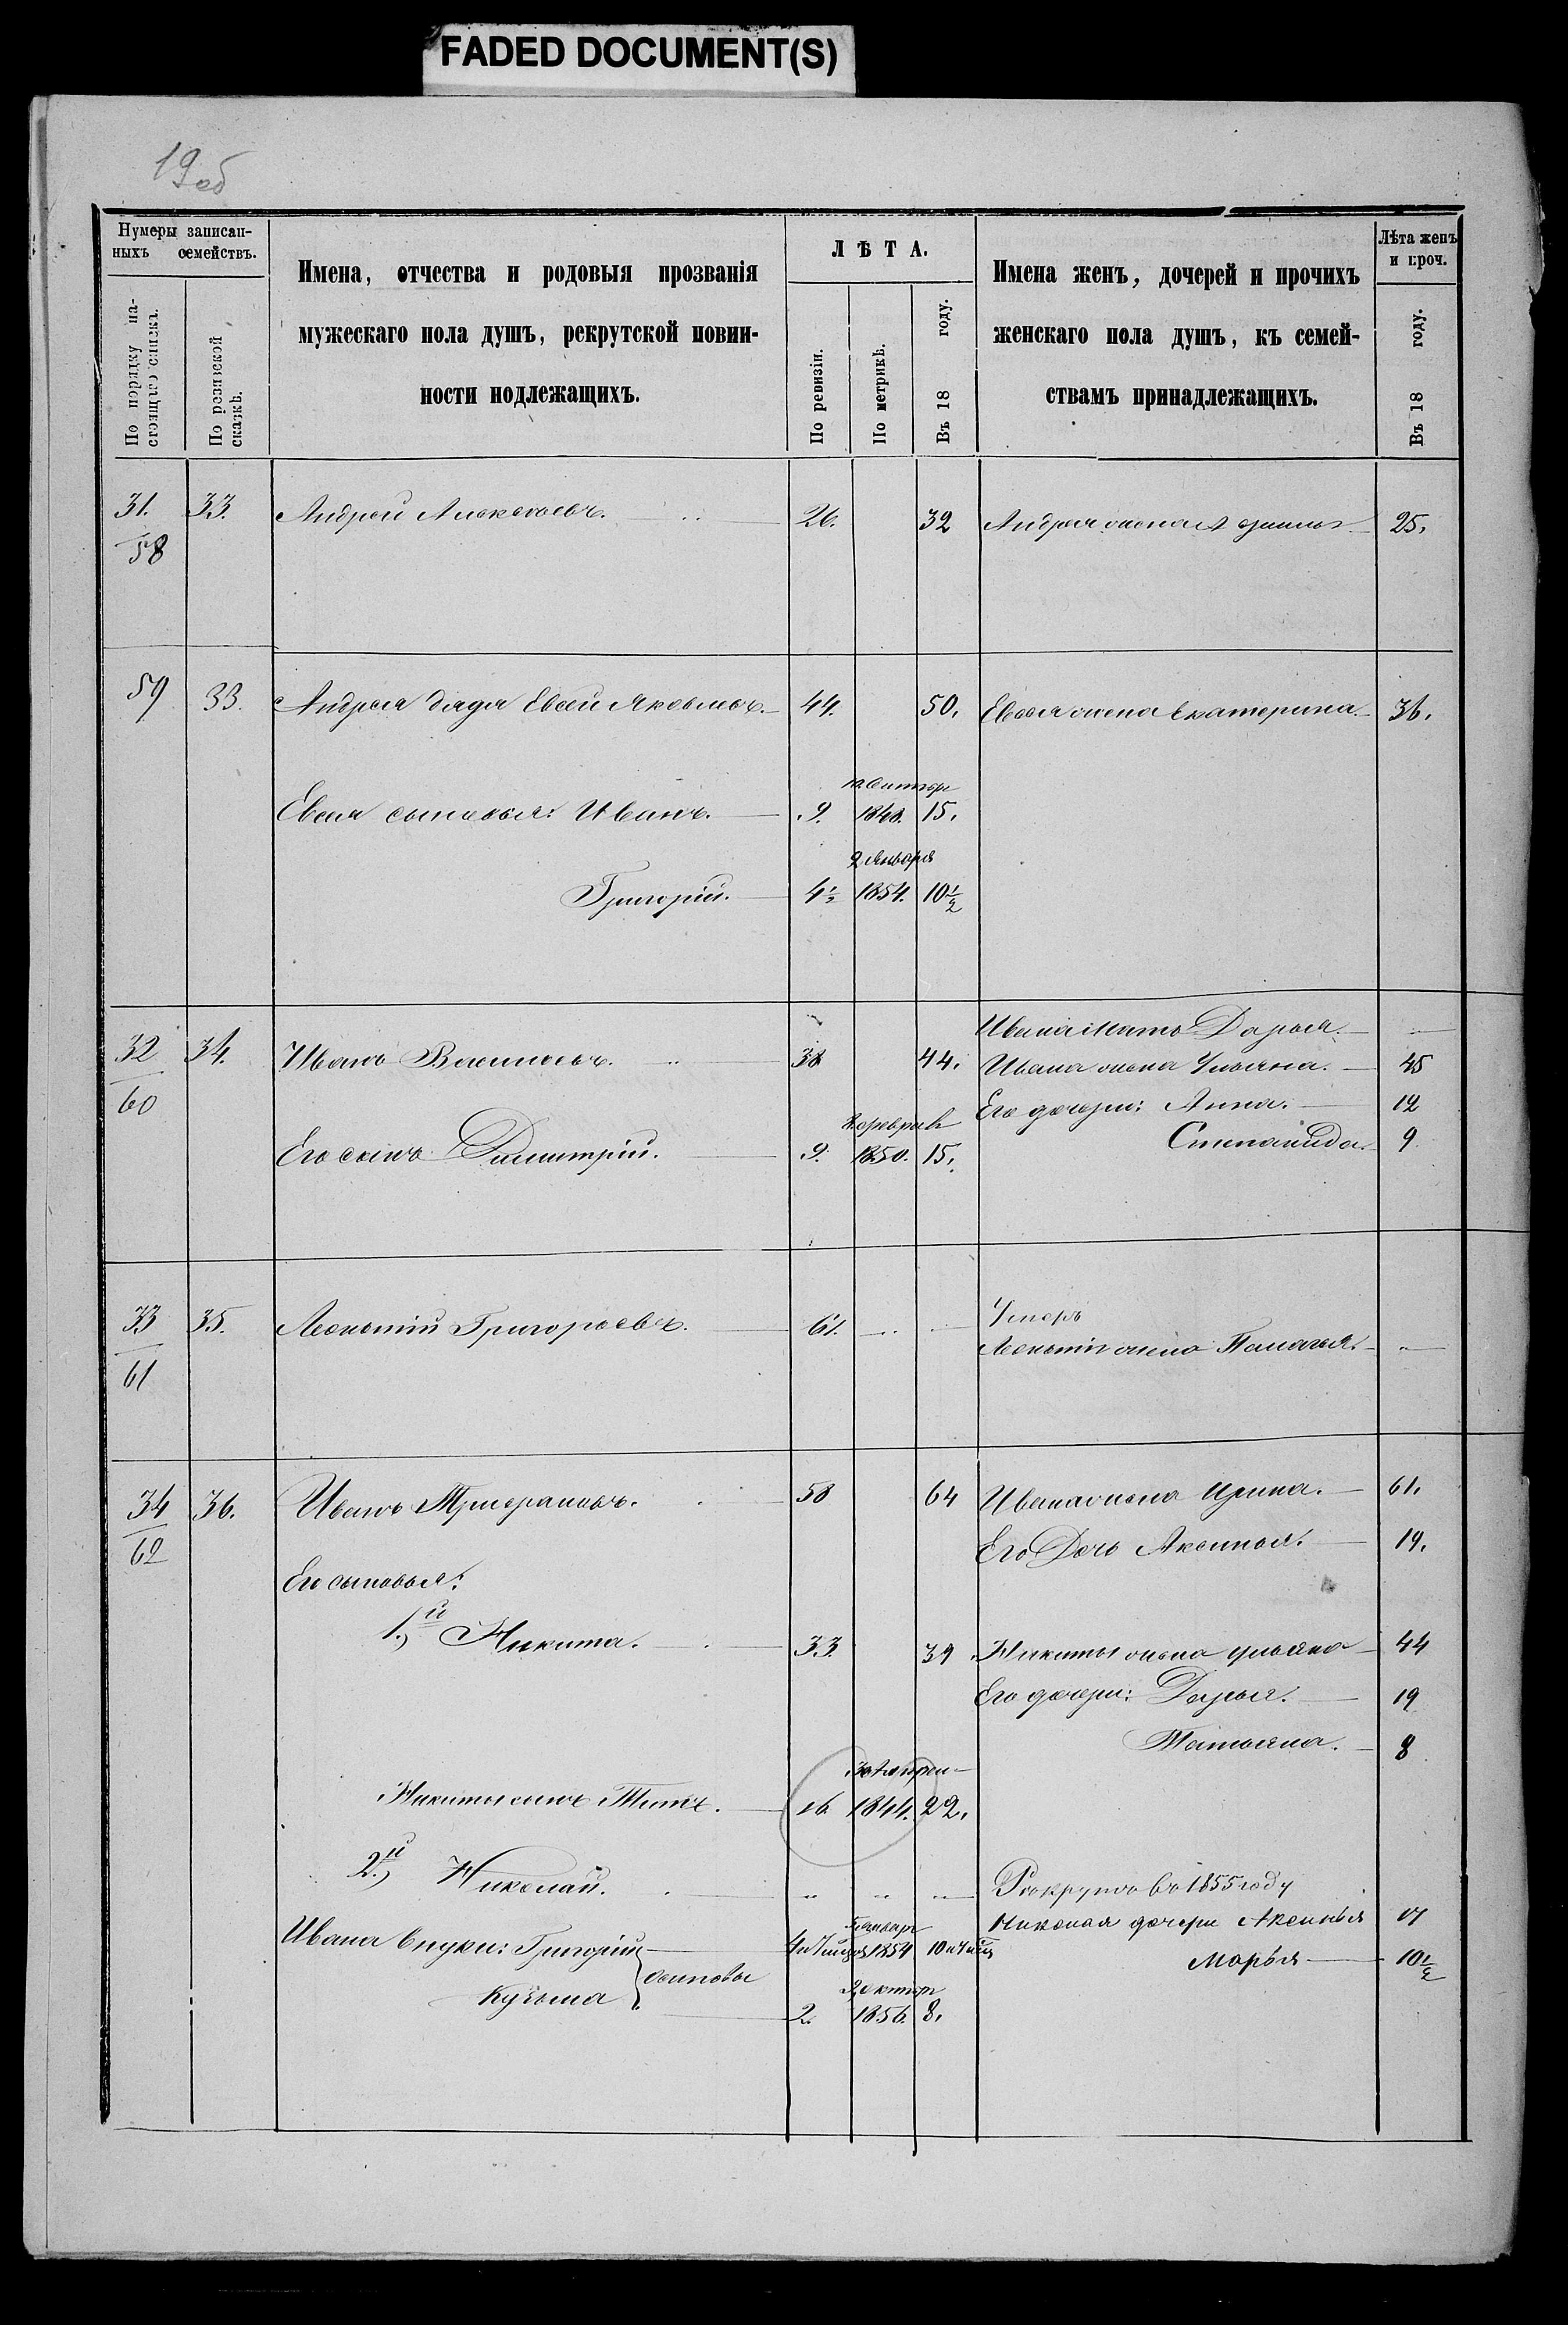 FADED DOCUMENT(S)
19об
Нумеры записан-
ныхъ семействъ.
По порядку на-
стоящаго списка.
По ревизской
сказкѣ.
Имена, отчества и родовыя прозванія
мужескаго пола душъ, рекрутской повин-
ности подлежащихъ.
ЛѢТА.
По ревизіи.
По метрикѣ.
Въ 18 году.
Имена женъ, дочерей и прочихъ
женскаго пола душъ, къ семей-
ствамъ принадлежащихъ.
Лѣта женъ
и проч.
Въ 18 году.
31. 33. Андрей Алексѣевъ. 26. 32 Андрея жена 25.
58
59 33. Андрея дядя Евсей Яковлевъ. 44. 50. Евсея жена Екатерина 36.
Евсея сыновья: Иванъ. 9. 1848. 15.
2 Января
Григорій. 4½ 1854. 10½
Ивана мать Дарья.
32 34. Иванъ Васильевъ. 38 44. Ивана жена Ульяна. 45
60
Его дочери: Анна. 12
Его сынъ Димитрій. 9. 1850. 15.
Степанида. 9
33 35. Леонтій Григорьевъ. 61.
Умеръ
61
Леонтія жена Палагья.
34 36. Иванъ 58 64 Ивана жена Ирина. 61.
62
Его дочь Аксинья. 19.
Его сыновья:
1.й Никита. 33. 39 Никиты жена Ульяна 44
Его дочери: Дарья. 19
Татьяна. 8
Никиты сынъ Титъ. 16 1844. 22.
2.й Николай.
Рекрутъ въ 1855 году
Николая дочери Аксинья 17
Ивана внуки: Григорій 1854
Осиповы
Марья 10½
Кузьма 2. 1856. 8.